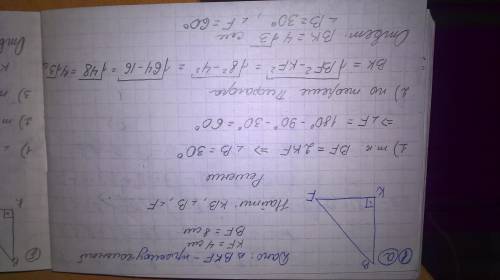 1 a
B
K
F
Дано: △ BKF - прямоугольный
KF = 4 см
BF = 8 см
Найти: KB, ∠B, ∠F
Решение
1) т.к BF = 2KF ⇒ ∠B = 30°
⇒ ∠F = 180° - 90° - 30° = 60°
2) по теореме Пифагора
BK = √BF² - KF² = √8² - 4² = √64 - 16 = √48 = 4√3
Ответ: BK = 4√3 см
∠B = 30°, ∠F = 60°
б
K
1) ∠
2) т
3) п
Отв